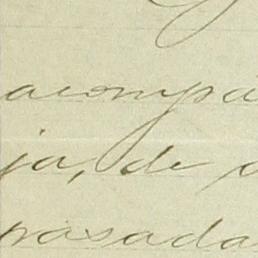 acompa
ja, de
pasada